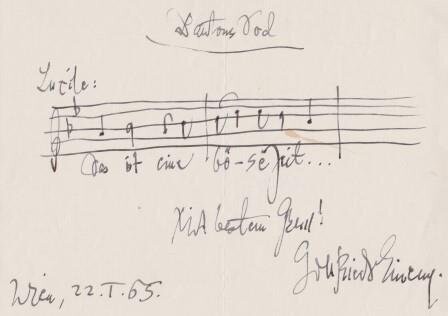 Dantons Tod
Lucile:
Das ist eine bö-se Zeit...
Mit bestem Gruss!
Gottfried Einem.
Wien, 22.I.65.